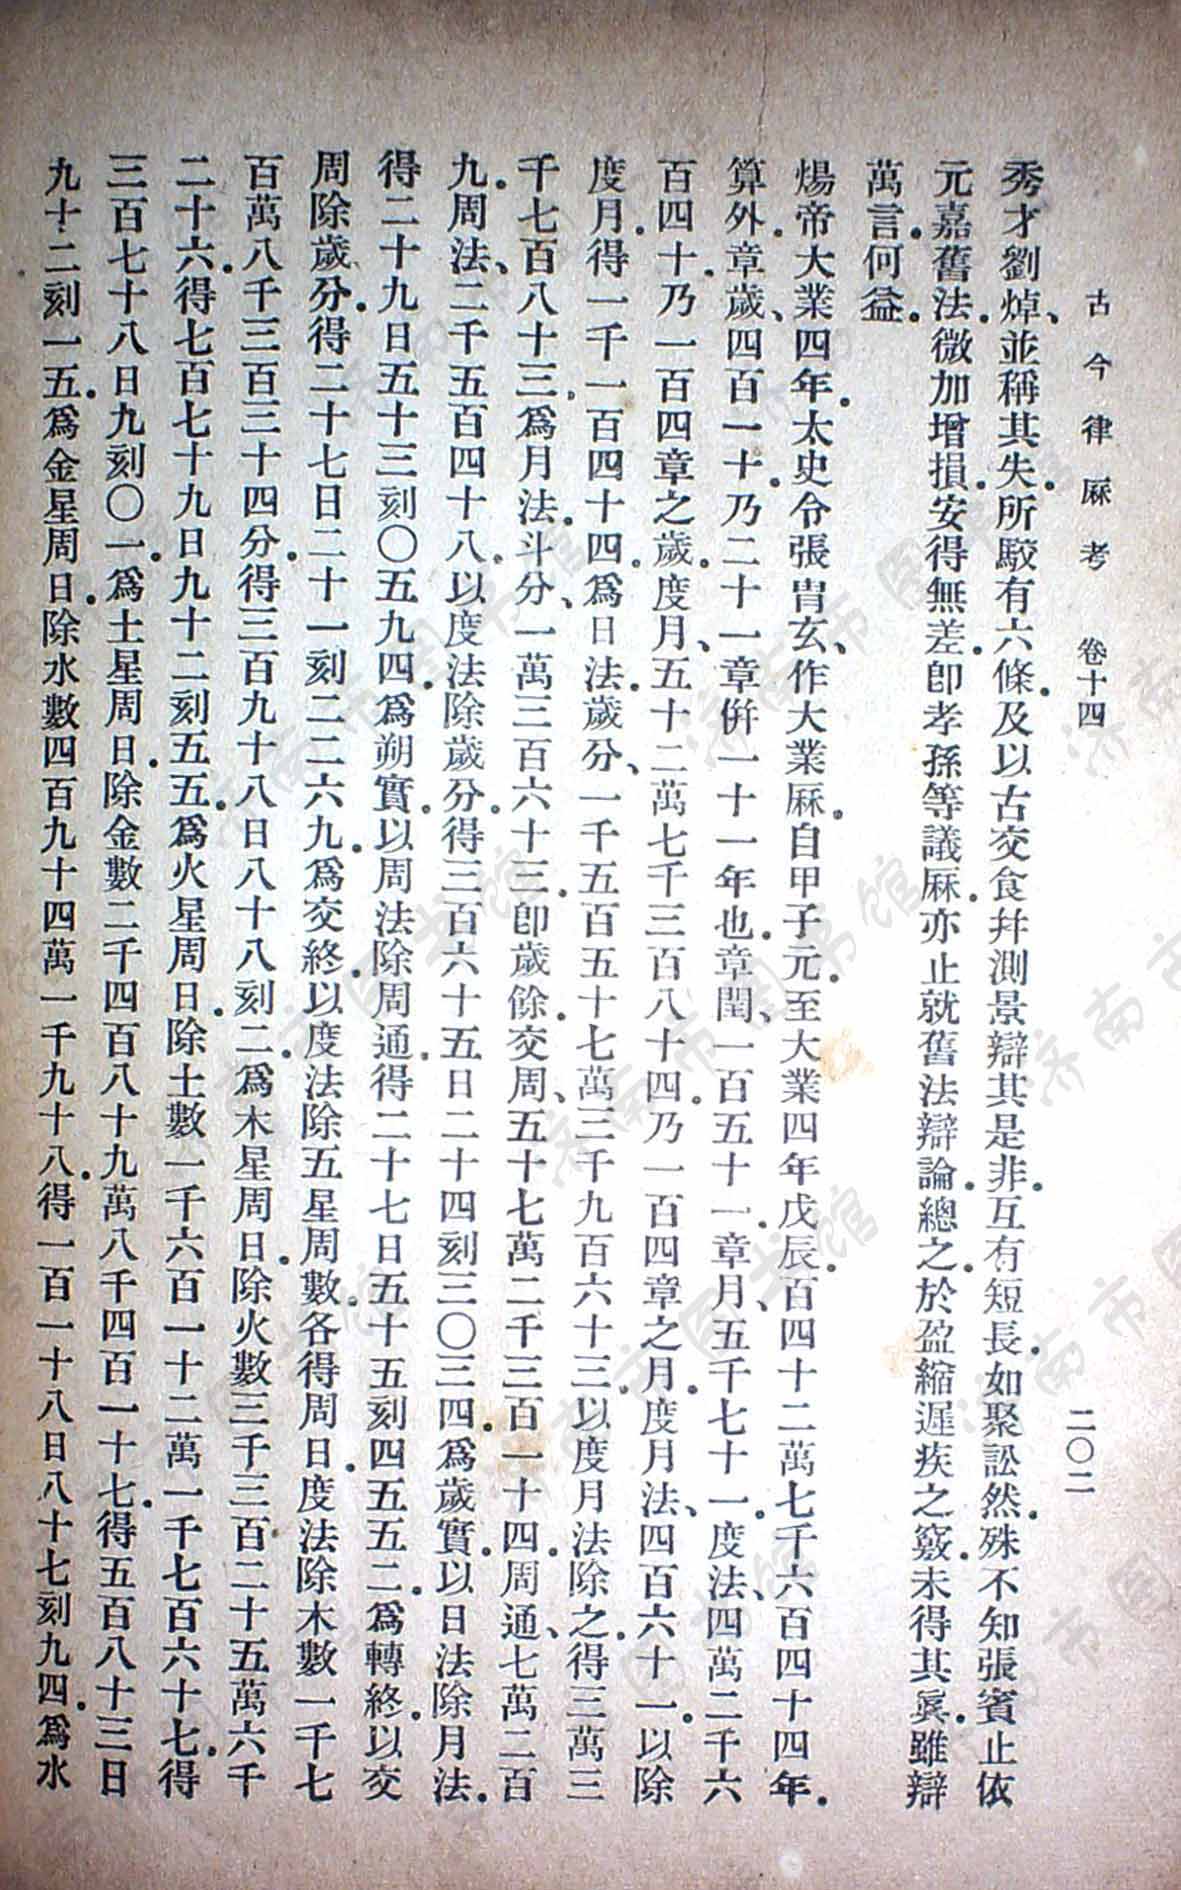 古今律厤考　卷十四　二〇二
秀才劉焯、並稱其失所駮有六條。及以古交食幷測景辯其是非。互有短長。如聚訟然。殊不知張賓止依
元嘉舊法。微加增損。安得無差。卽孝孫等議厤。亦止就舊法辯論。總之。於盈縮遲疾之竅。未得其眞。雖辯
萬言。何益。
煬帝大業四年。太史令張胄玄、作大業厤。自甲子元。至大業四年戊辰。百四十二萬七千六百四十四年。
算外。章歲、四百一十。乃二十一章倂一十一年也。章閏、一百五十一。章月、五千七十一。度法、四萬二千六
百四十。乃一百四章之歲。度月、五十二萬七千三百八十四。乃一百四章之月。度月法、四百六十一。以除
度月。得一千一百四十四。爲日法。歲分、一千五百五十七萬三千九百六十三。以度月法除之。得三萬三
千七百八十三。爲月法。斗分、一萬三百六十三。卽歲餘。交周、五十七萬二千三百一十四。周通、七萬二百
九。周法、二千五百四十八。以度法除歲分。得三百六十五日二十四刻三〇三四。爲歲實。以日法除月法。
得二十九日五十三刻〇五九四。爲朔實。以周法除周通。得二十七日五十五刻四五五二。爲轉終。以交
周除歲分。得二十七日二十一刻二二六九。爲交終。以度法除五星周數。各得周日。度法除木數一千七
百萬八千三百三十四分。得三百九十八日八十八刻二。爲木星周日。除火數三千三百二十五萬六千
二十六。得七百七十九日九十二刻五五。爲火星周日。除土數一千六百一十二萬一千七百六十七。得
三百七十八日九刻〇一。爲土星周日。除金數二千四百八十九萬八千四百一十七。得五百八十三日
九十二刻一五。爲金星周日。除水數四百九十四萬一千九十八。得一百一十八日八十七刻九四。爲水